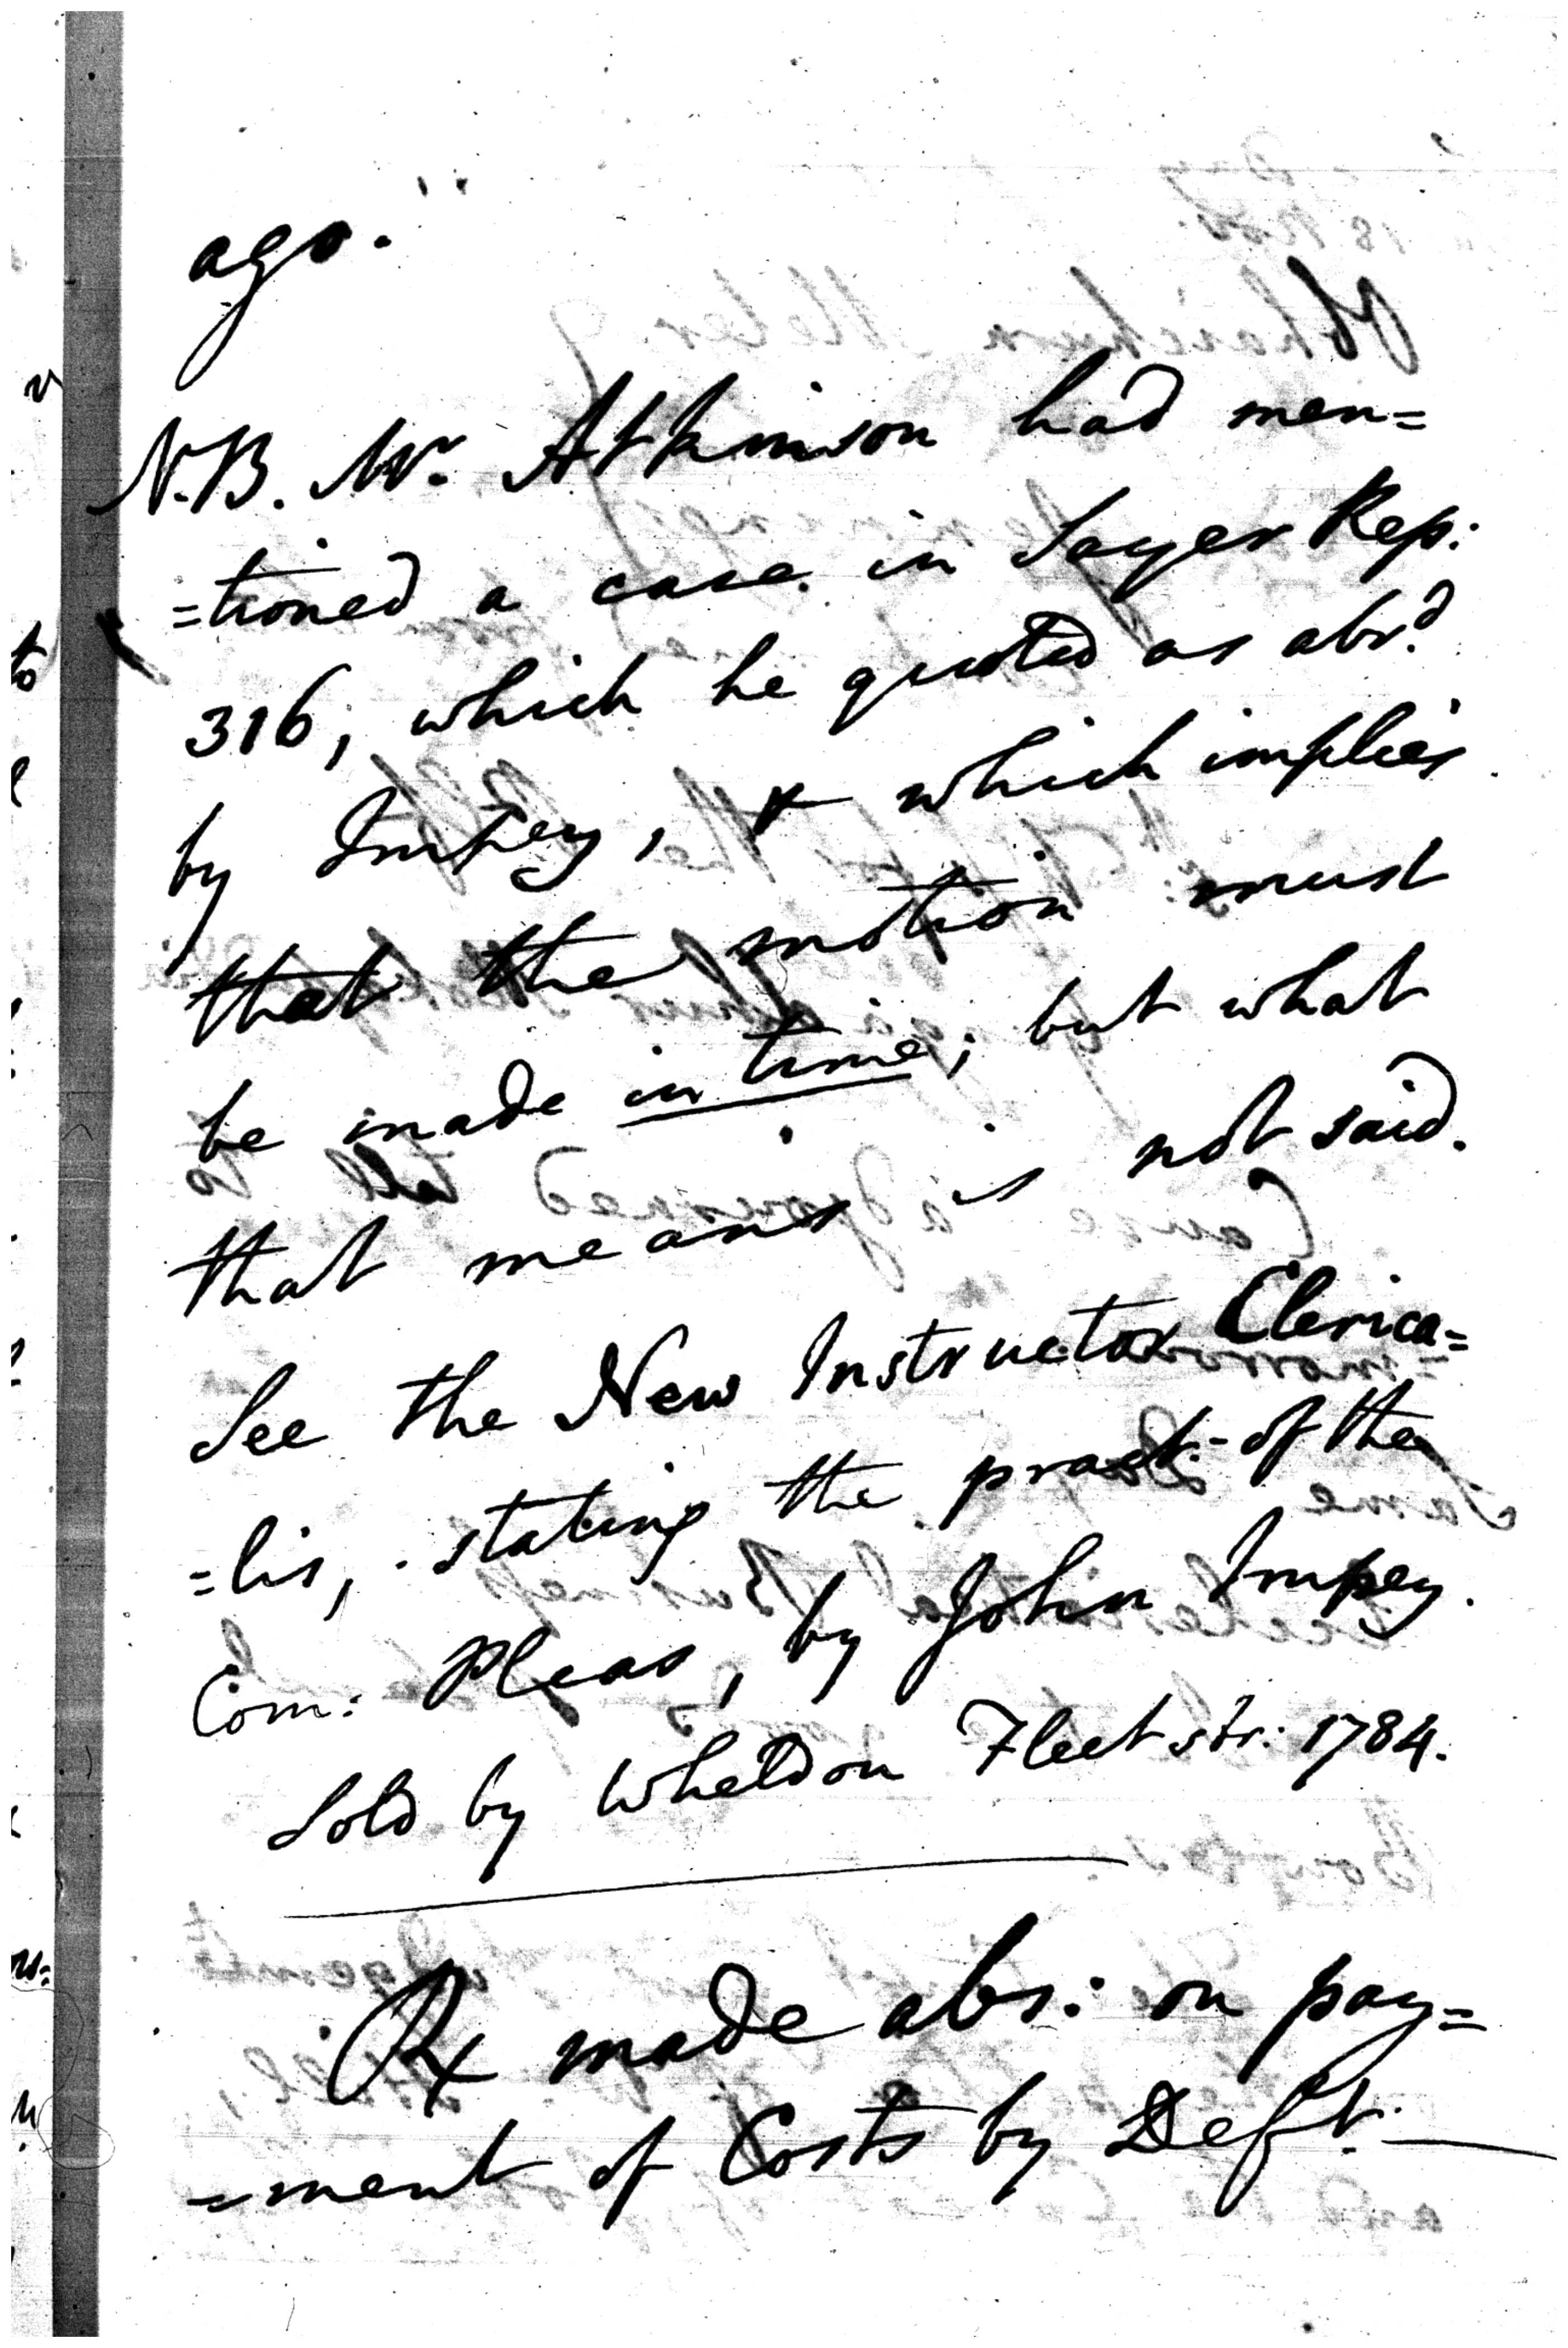 ago."
N.B. Mr. Atkinson had men=
=tioned a case in Sayer Rep:
316, which he quoted as abrd.
by Impey, & which implies
that the motion must
be made in time; but what
that means is not said.
See the New Instructor Clerica=
=lis, stating the pract: of the
Com: Pleas, by John Impey.
Sold by Wheldon Fleet str: 1784.
Rx made abs: on pay=
=ment of Costs by Deft.—